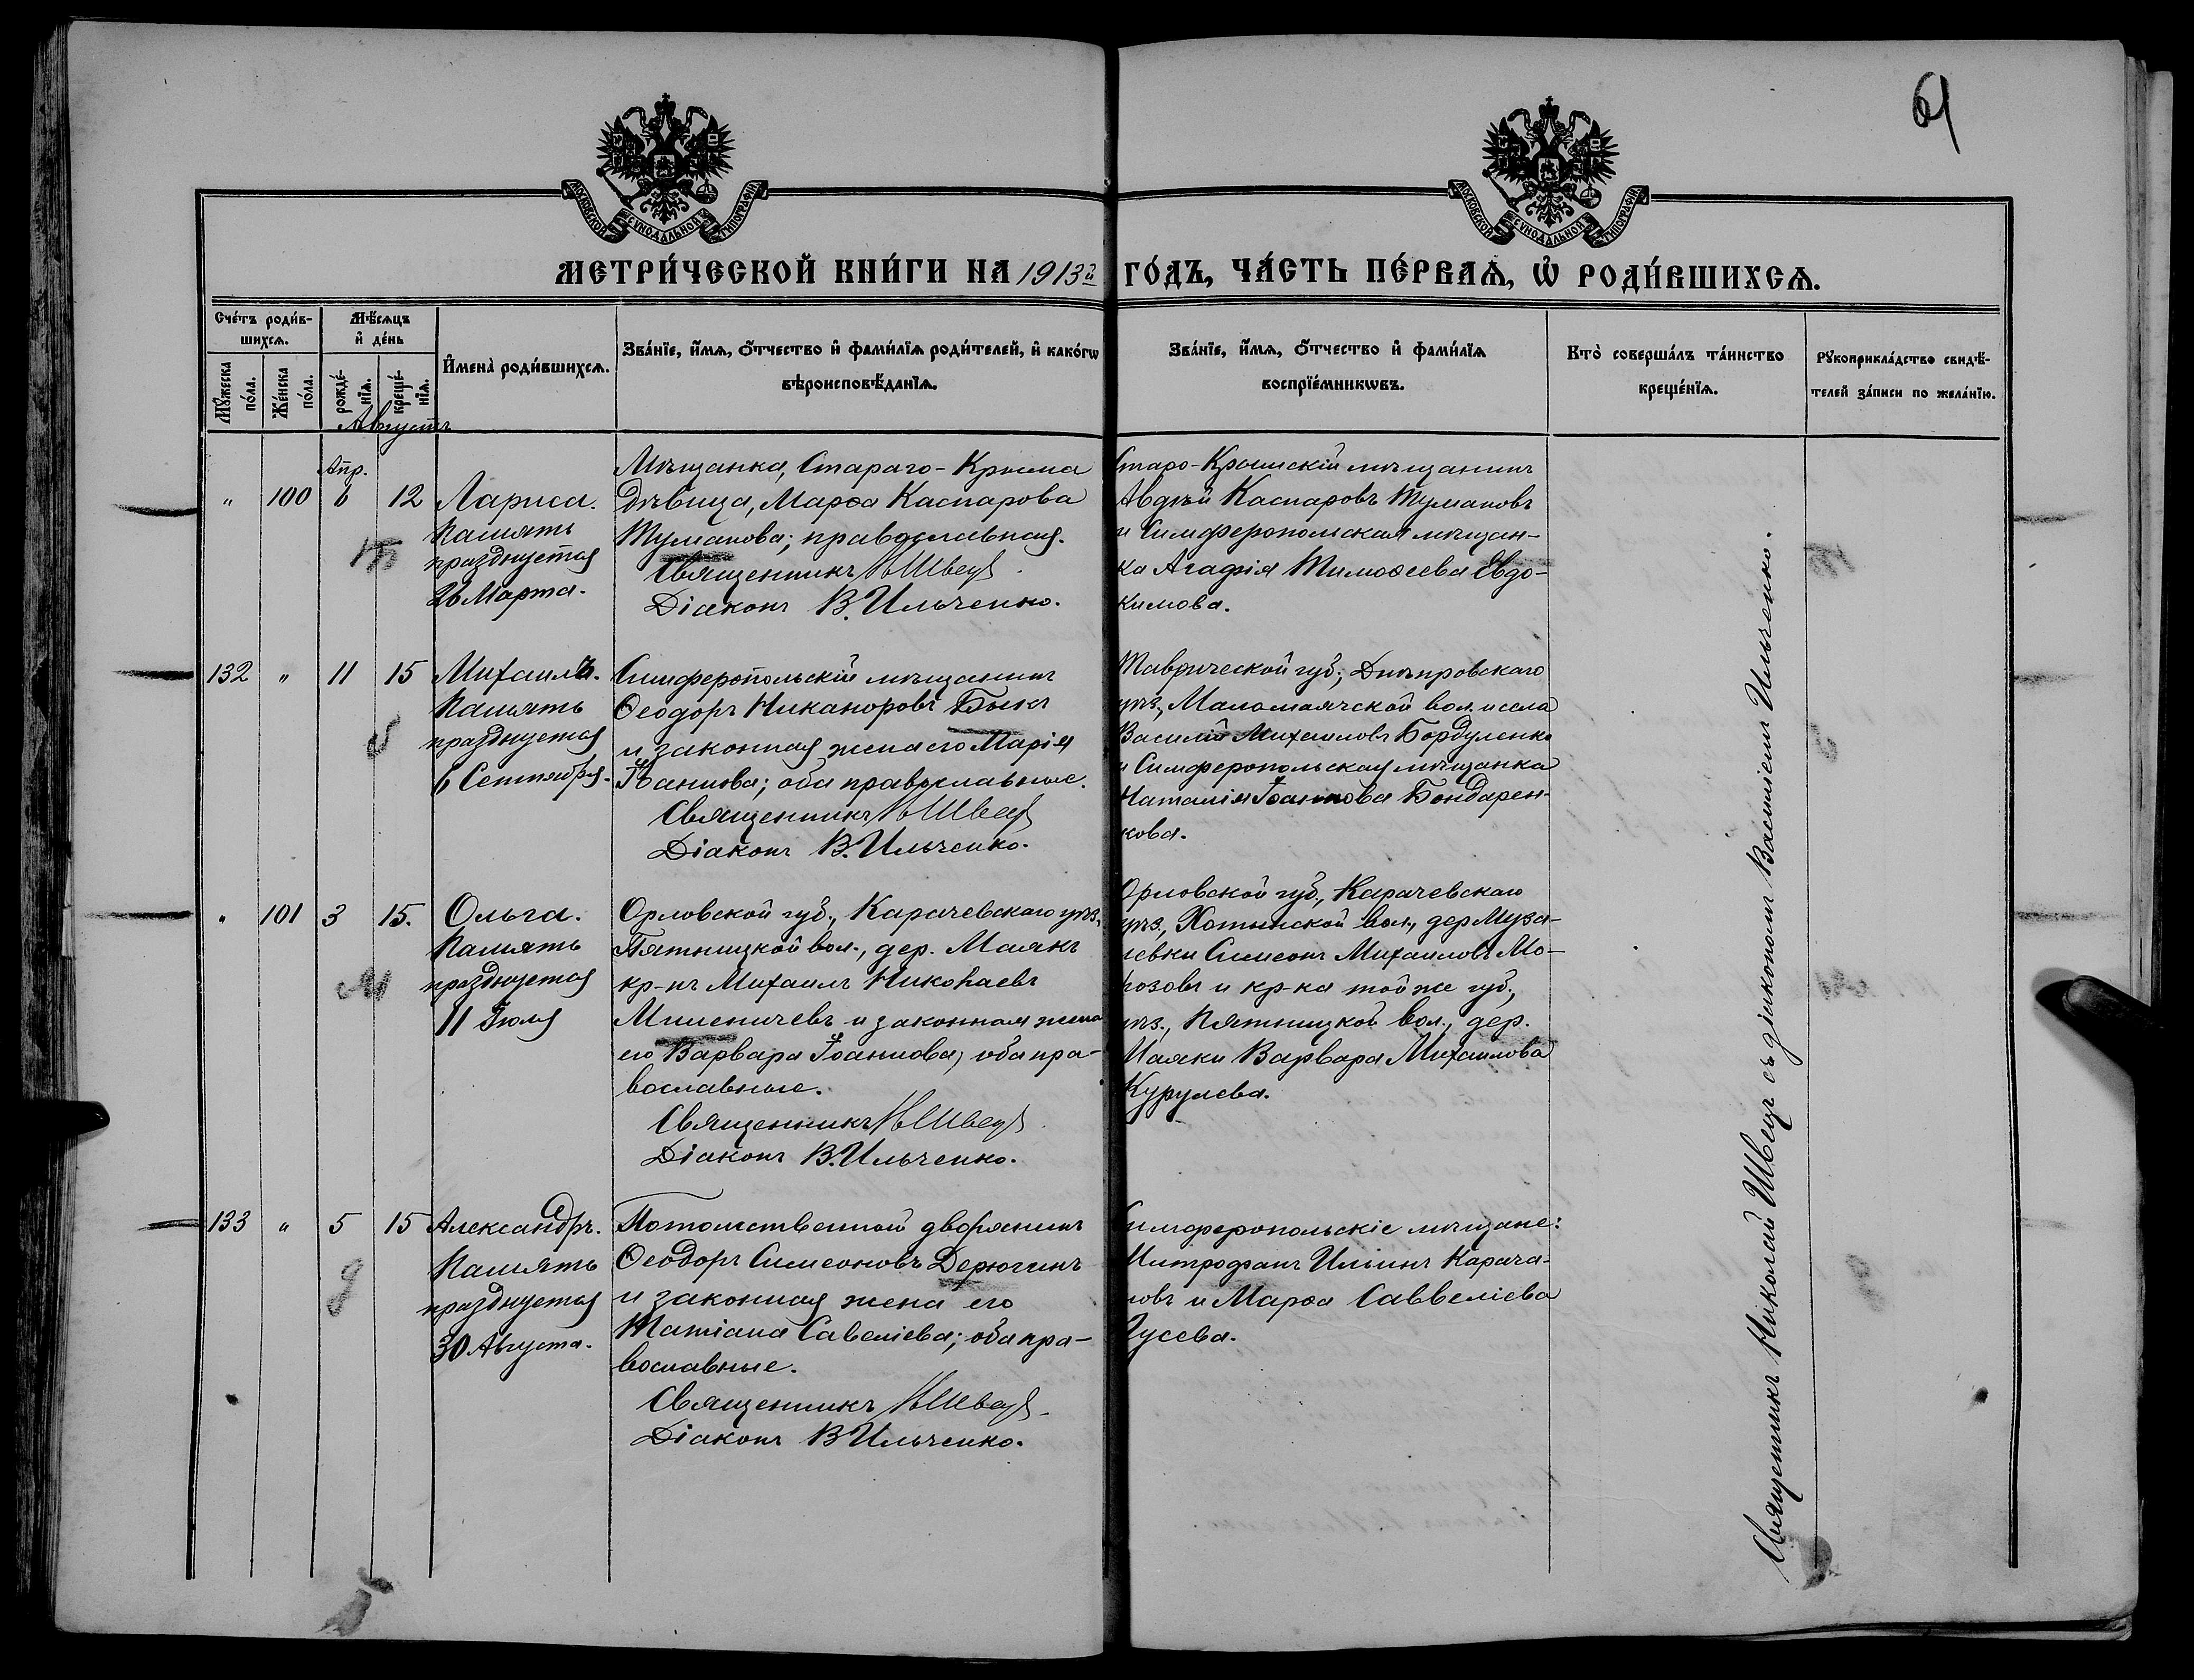 61
МОСКОВСКОЙ СѴНОДАЛЬНОЙ ТИПОГРАФІИ
МОСКОВСКОЙ СѴНОДАЛЬНОЙ ТИПОГРАФІИ
МЕТРИ́ЧЕСКОЙ КНИ́ГИ НА 1913й ГО́ДЪ, ЧА́СТЬ ПЕ́РВАѦ, Ѡ҆ РОДИ́ВШИХСѦ.
Сче́тъ роди́в-
шихсѧ.
Мꙋ́жеска
по́ла.
Же́нска
по́ла.
Мѣ́сѧцъ
и҆ де́нь
рожде́-
нїѧ.
креще́-
нїѧ.
И҆мена̀ роди́вшихсѧ.
Зва́нїе, и҆́мѧ, ѻ҆́тчество и҆ фами́лїѧ роди́телей, и҆ како́гѡ
вѣроисповѣ́данїѧ.
Зва́нїе, и҆́мѧ, ѻ҆́тчество и҆ фами́лїѧ
воспрїе́мникѡвъ.
Кто̀ соверша́лъ та́инство
креще́нїѧ.
Рꙋкоприкла́дство свидѣ́-
телей за́писи по жела́нїю.
Августъ
Апр.
" 100 6 12 Лариса.
Память
празднуется
26 Марта.
Мѣщанка, Стараго-Крыма
Дѣвица, Марѳа Каспарова
Туманова; православная.
Священникъ Н Швецъ
Діаконъ В. Ильченко.
Старо-Крымскій мѣщанинъ
Авдѣй Каспаровъ Тумановъ
и Симферопольская мѣщан-
ка Агафія Тимоѳеева Евдо-
кимова.
132 " 11 15 Михаилъ.
Память
празднуется
6 Сентября.
Симферопольскій мѣщанинъ
Ѳеодоръ Никаноровъ Быкъ
и законная жена его Марія
Іоаннова; оба православные.
Священникъ Н Швецъ
Діаконъ В. Ильченко.
Таврической губ., Днѣпровскаго
уѣз., Маломаячской вол. и села
Василій Михаиловъ Бордуленко
и Симферопольская мѣщанка
Наталія Іоаннова Бондарен-
кова.
" 101 3 15. Ольга.
Память
празднуется
11 Іюля
Орловской губ., Карачевскаго уѣз.,
Пятницкой вол., дер. Маякъ
кр-нъ Михаилъ Николаевъ
Миленичевъ и законная жена
его Варвара Іоаннова; оба пра-
вославные.
Священникъ Н Швецъ
Діаконъ В. Ильченко.
Орловской губ., Карачевскаго
уѣз., Хотынской вол., дер
Симеонъ Михаиловъ Мо-
розовъ и кр-ка той же губ.,
уѣз., Пятницкой вол., дер.
Маяки Варвара Михаилова
Курулева.
133 " 5 15 Александръ.
Память
празднуется
30 Августа.
Потомственной дворянинъ
Ѳеодоръ Симеоновъ Дерюгинъ
и законная жена его
Татіана Савеліева; оба пра-
вославные.
Священникъ Н Швецъ
Діаконъ В Ильченко.
Симферопольскіе мѣщане:
Митрофанъ Ильинъ Карача-
новъ и Марѳа Саввеліева
Гусева.
Священникъ Николай Швецъ съ діакономъ Василіемъ Ильченко.